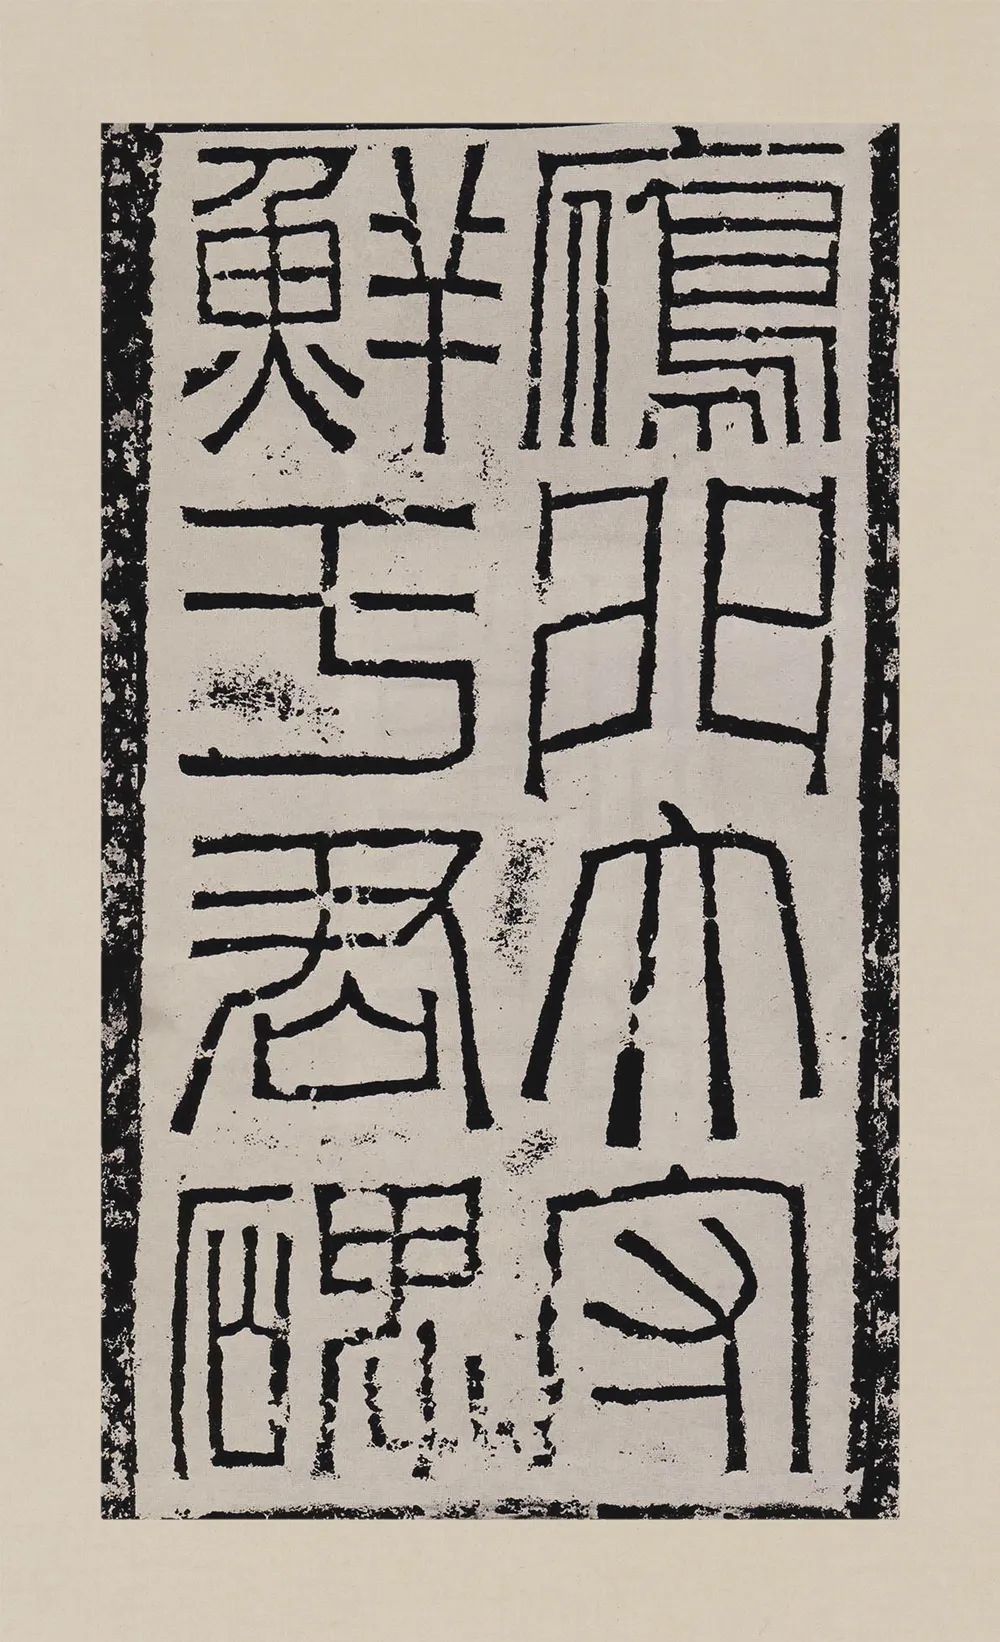 雁門太守
鮮于君碑